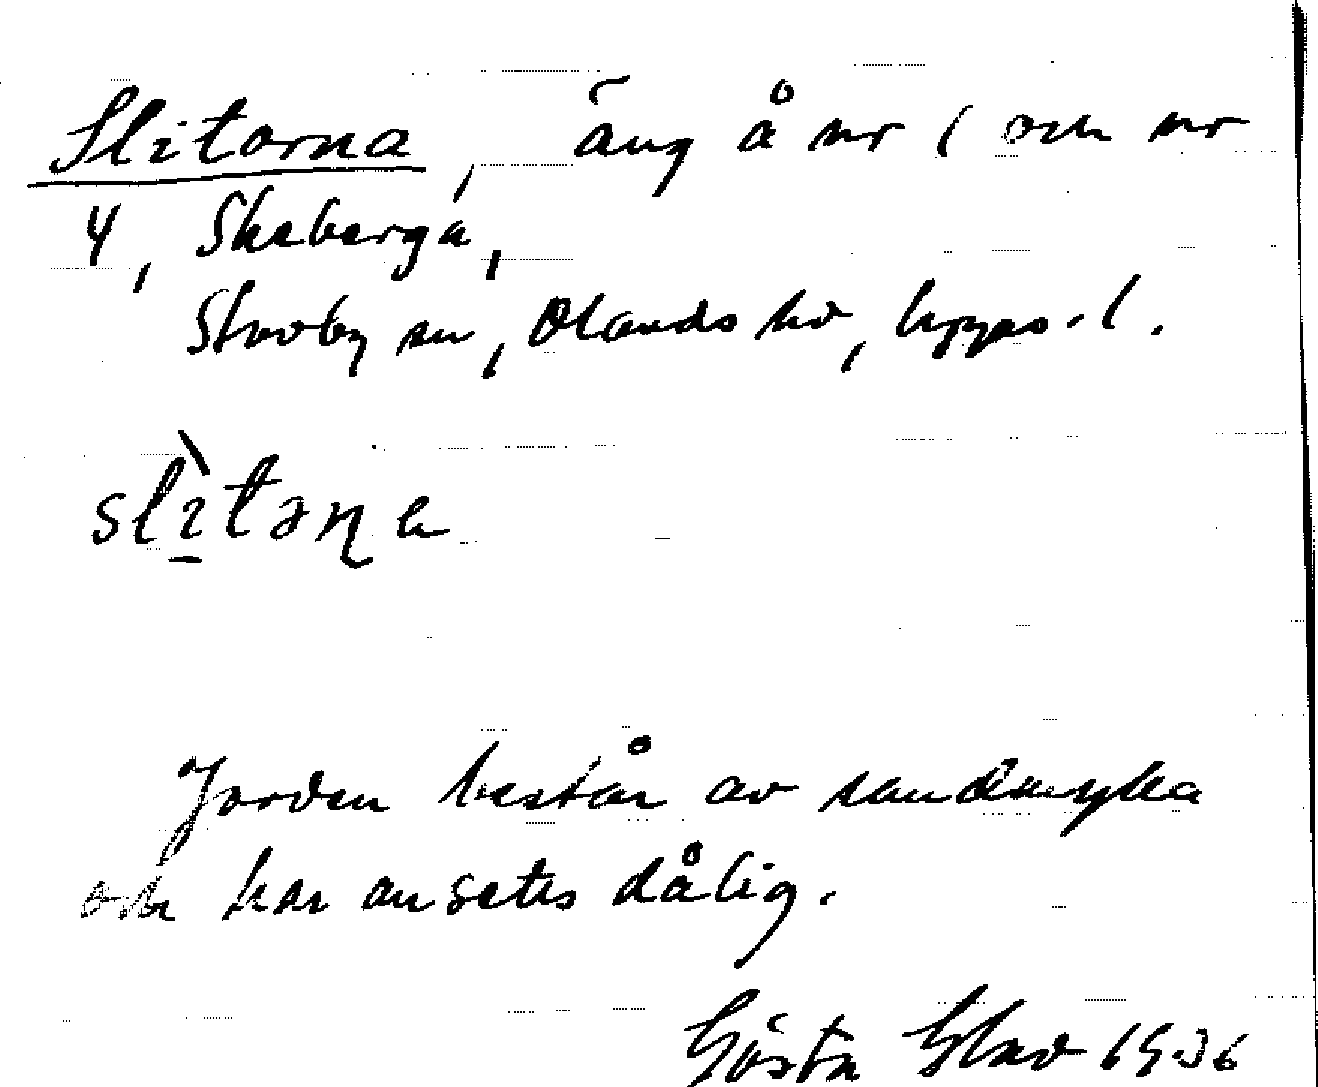 Slitorna, äng å nr 1 och nr
4, Skeberga,
Skovby sn, Olands hd, Upps. l.
slı̱̀təɳa
Jorden består av sandmylla
och har ansetts dålig.
Gösta Elod 1936